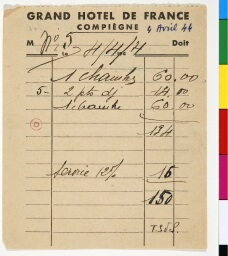 GRAND HOTEL DE FRANCE
COMPIÈGNE
4 Avril 44
M Doit
1 chambre 60.00
5- 2 pts dj 14.00
60.00
134
Service 12%
16
150